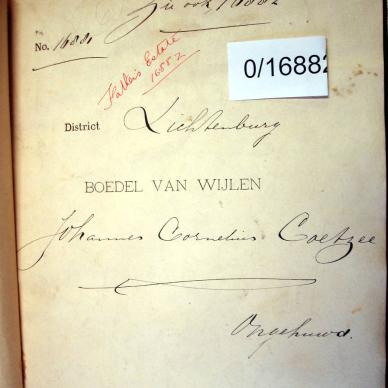 Zie ook 16882
No. 16881
Father's Estate
16882
0/16882
District Lichtenburg
BOEDEL VAN WIJLEN
Johannes Cornelius Coetzee
Ongehuwd.